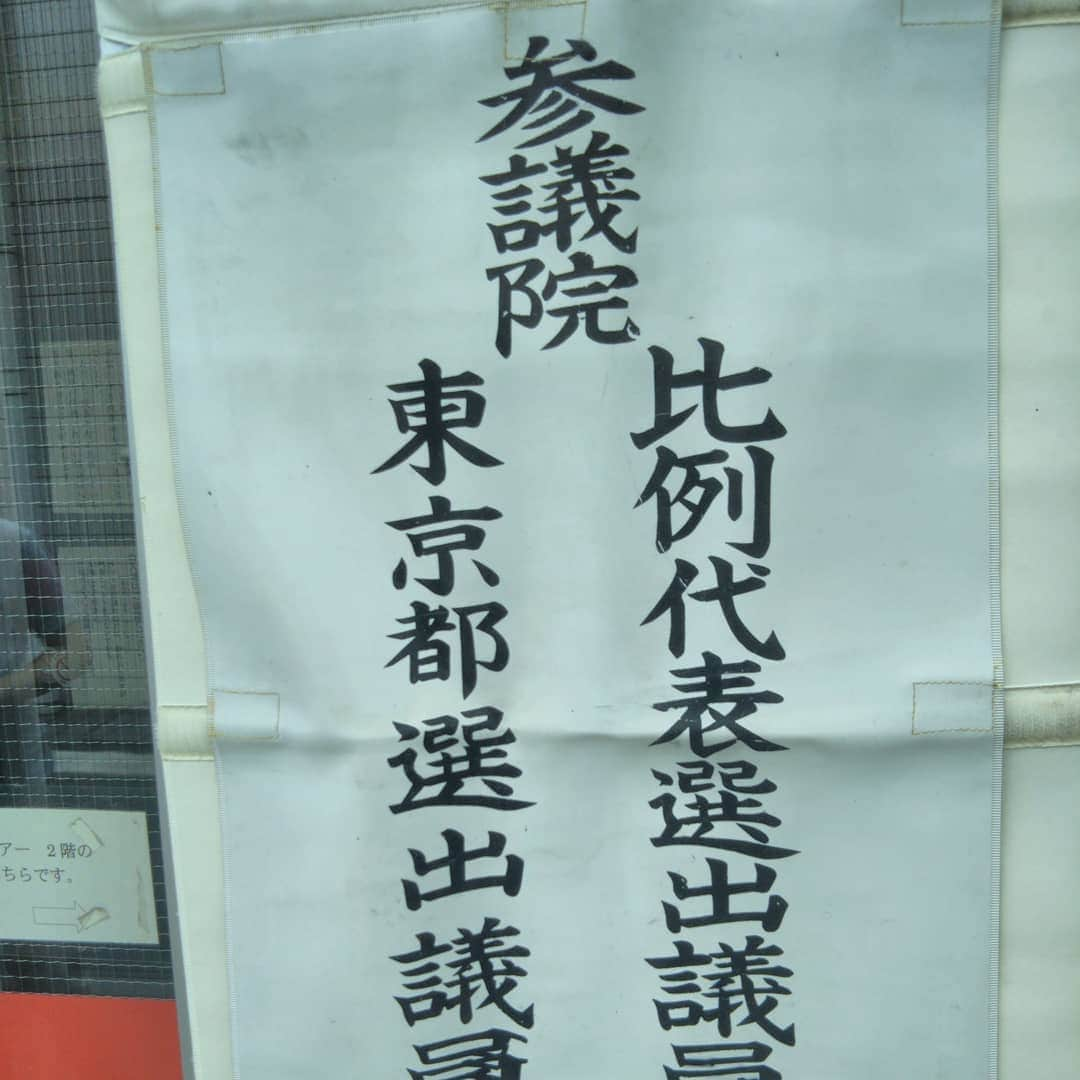 参議院
比例代表選出議員
東京都選出議員
アー 2階の
ちらです。